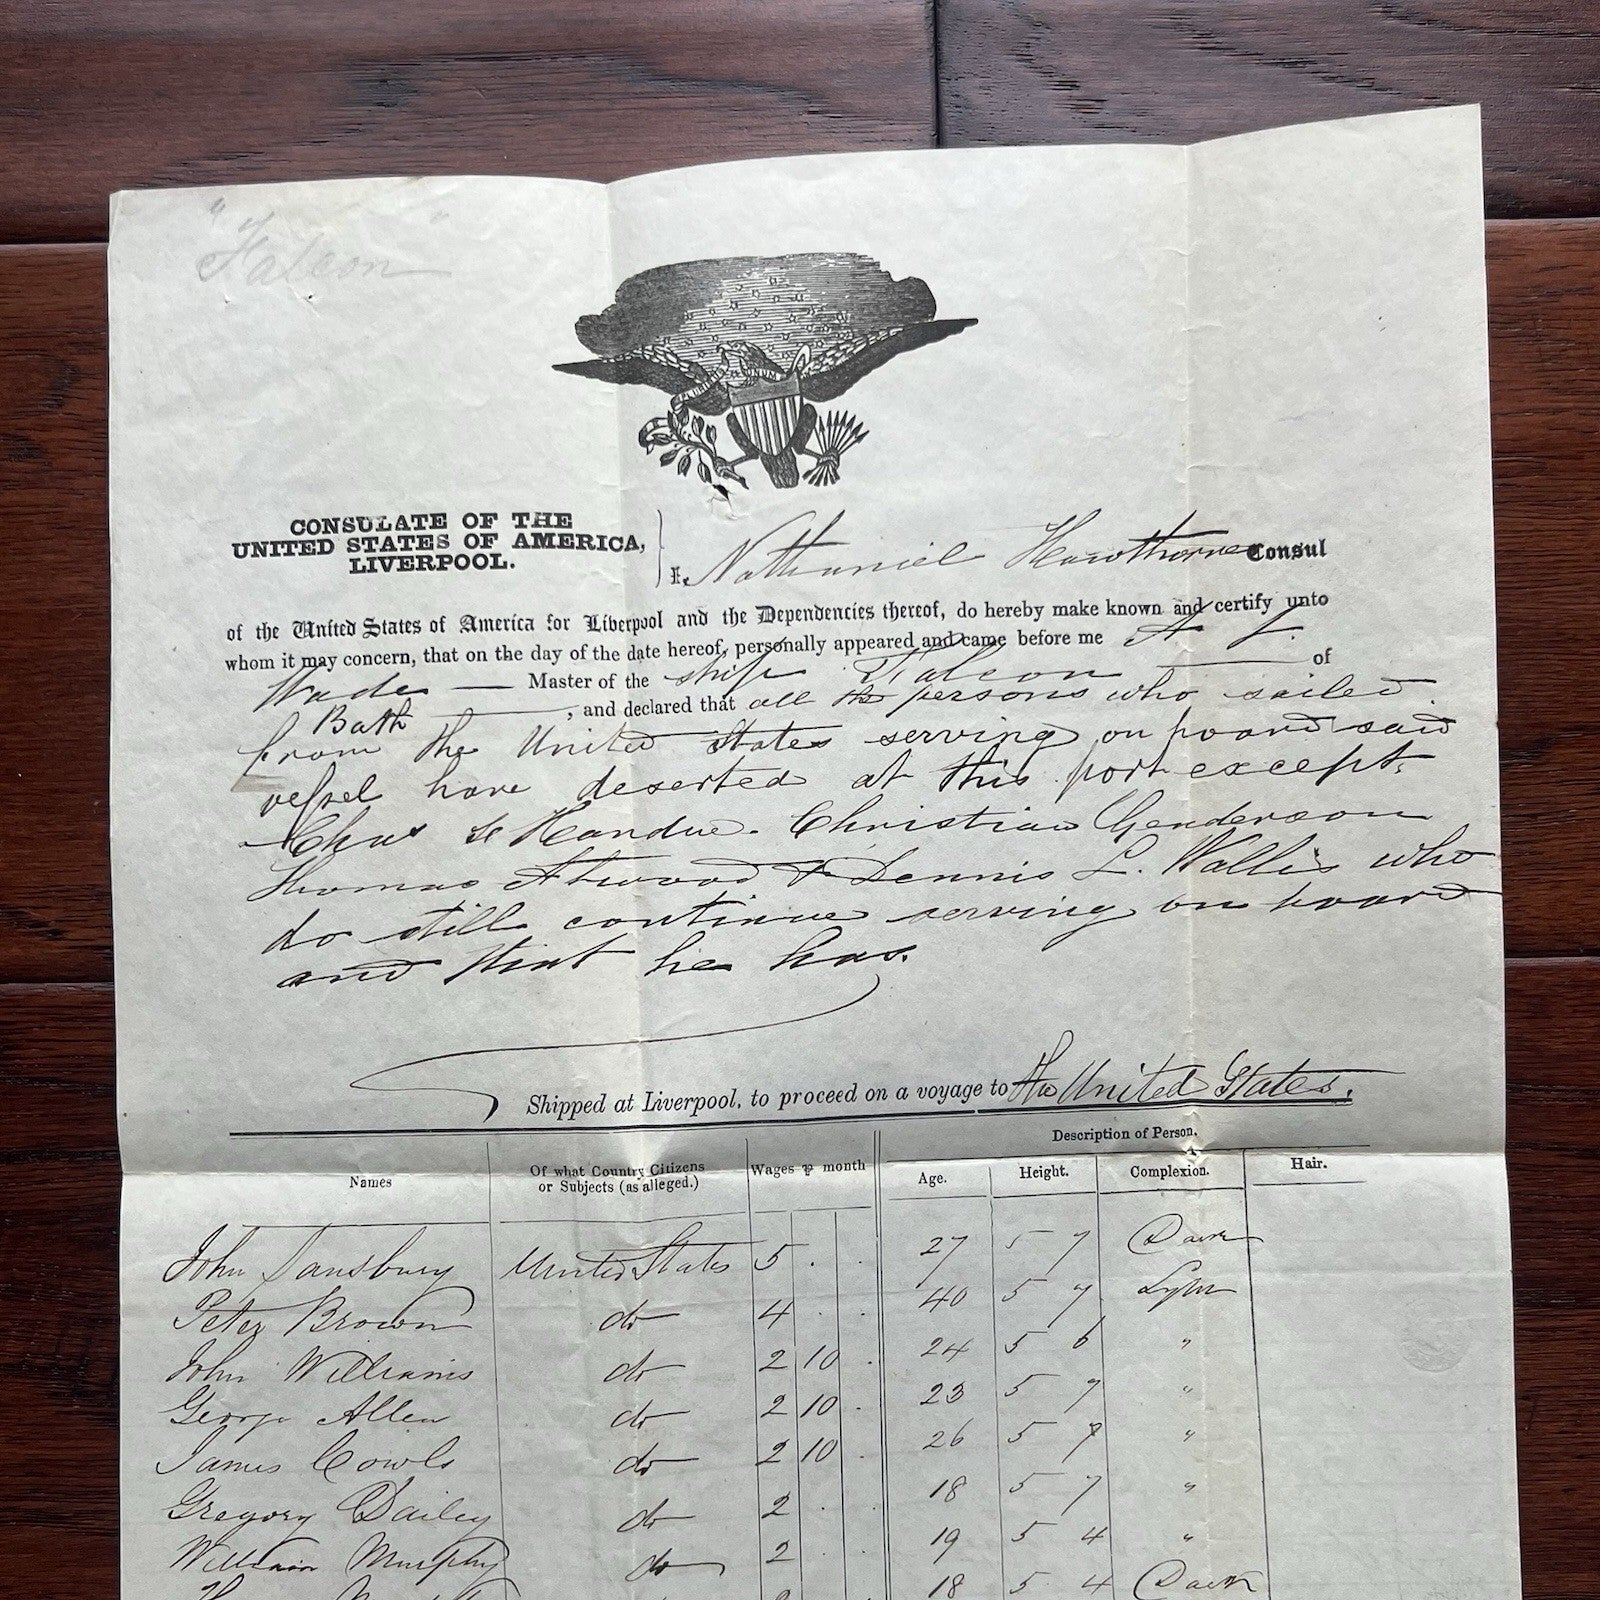 "Falcon"
E PLURIBUS UNUM
CONSULATE OF THE
UNITED STATES OF AMERICA,
LIVERPOOL.
I, Nathaniel Hawthorne Consul
of the United States of America for Liverpool and the Dependencies thereof, do hereby make known and certify unto
whom it may concern, that on the day of the date hereof, personally appeared and came before me A L.
Wade Master of the ship Falcon of
Bath, and declared that all the persons who sailed
from the United States serving on board said
vessel have deserted at this port except
Chas Handue. Christian Genderson
Thomas Atwood & Dennis L. Wallis who
do still continue serving on board
and that he has.
Shipped at Liverpool, to proceed on a voyage to the United States.
Description of Person.
Names Of what Country Citizens or Subjects (as alleged.) Wages ⅌ month Age. Height. Complexion. Hair.
John Sansbury United States 5 . . 27 5 7 Dark
Peter Brown do 4 . . 40 5 7 Light
John Williams do 2 10 . 24 5 6 "
George Allen do 2 10 . 23 5 7 "
James Cowls do 2 10 . 26 5 "
Gregory Dailey do 2 . . 18 5 7 "
William Murphy do 2 . . 19 5 4 "
18 5 4 Dark